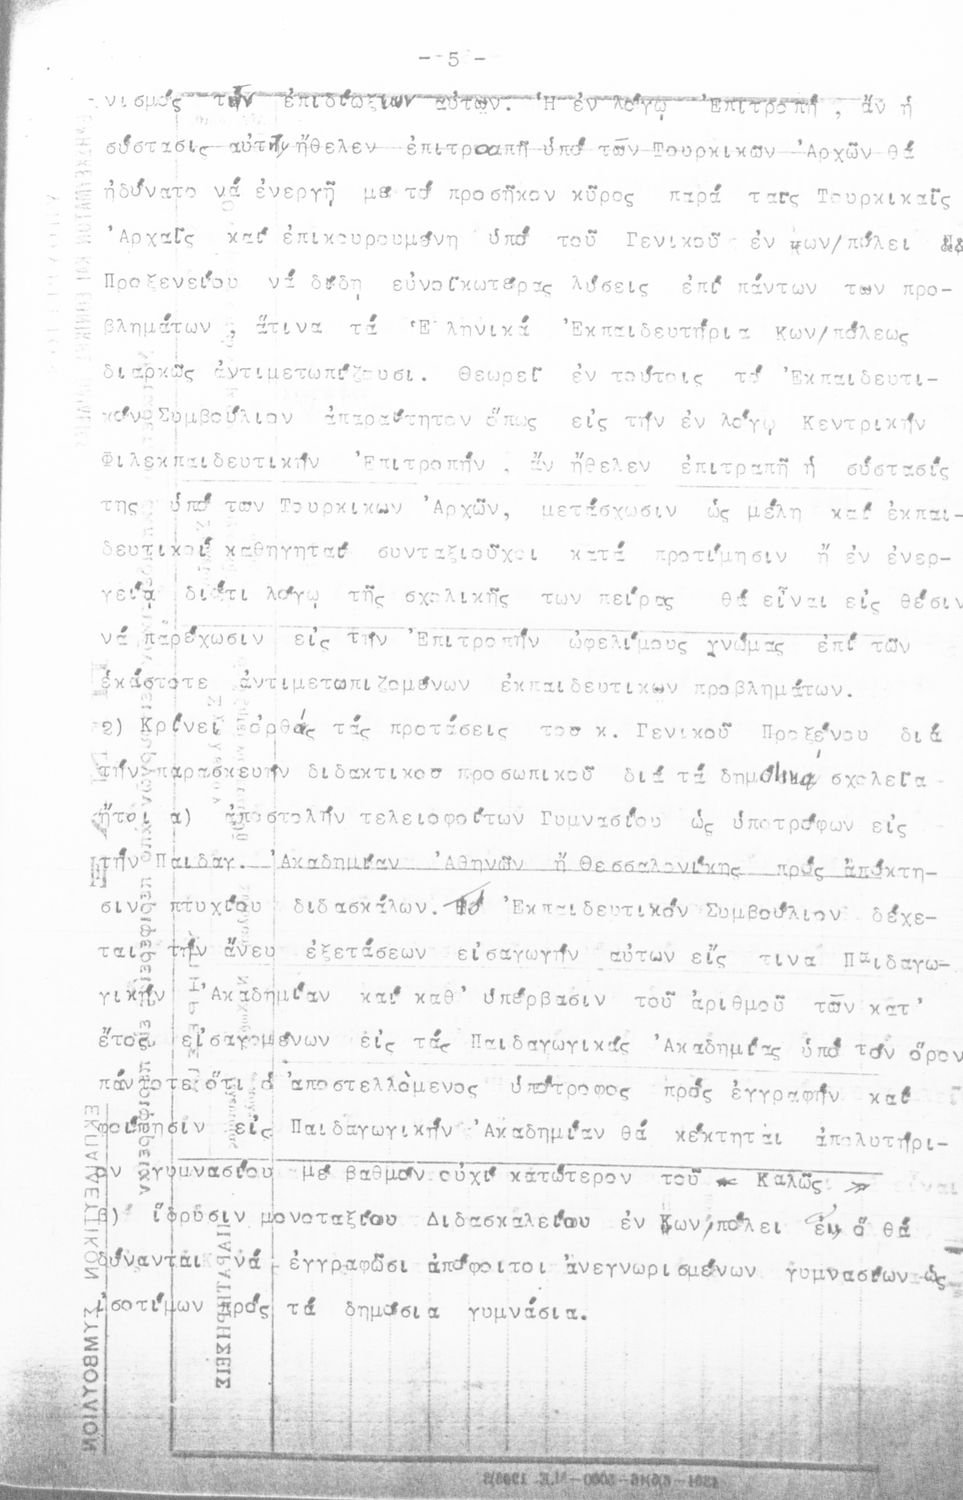 - 5 -
νισμός τῶν ἐπιδιώξεων αὐτῶν. Ἡ ἐν λόγῳ Ἐπιτροπή, ἄν ἡ
σύστασις αὐτῆς ἤθελεν ἐπιτραπῆ ὑπό τῶν Τουρκικῶν Ἀρχῶν θά
ἠδύνατο νά ἐνεργῆ με τό προσῆκον κῦρος παρά ταῖς Τουρκικαῖς
Ἀρχαῖς καί ἐπικουρουμένη ὑπό τοῦ Γενικοῦ ἐν Κων/πόλει
Προξενείου νά δίδη εὐνοϊκωτέρας λύσεις ἐπί πάντων των προ-
βλημάτων, ἅτινα τά Ἑληνικά Ἐκπαιδευτήρια Κων/πόλεως
διαρκῶς ἀντιμετωπίζουσι. Θεωρεῖ ἐν τούτοις τό Ἐκπαιδευτι-
κόν Συμβούλιον ἀπαραίτητον ὅπως εἰς τήν ἐν λόγῳ Κεντρικήν
Φιλεκπαιδευτικήν Ἐπιτροπήν, ἄν ἤθελεν ἐπιτραπῆ ἡ σύστασίς
της ὑπό των Τουρκικων Ἀρχῶν, μετάσχωσιν ὡς μέλη καί ἐκπαι-
δευτικοί καθηγηταί συνταξιοῦχοι κατά προτίμησιν ἤ ἐν ἐνερ-
γείᾳ διότι λόγῳ τῆς σχολικῆς των πείρας θά εἶναι εἰς θέσιν
νά παρέχωσιν εἰς τήν Ἐπιτροπήν ὠφελίμους γνώμας ἐπί τῶν
ἑκάστοτε ἀντιμετωπιζομένων ἐκπαιδευτικων προβλημάτων.
2) Κρίνει ὀρθάς τάς προτάσεις του κ. Γενικοῦ Προξένου διά
τήν παρασκευήν διδακτικου προσωπικοῦ διά τά δημοτικά σχολεῖα
ἤτοι α) ἀποστολήν τελειοφοίτων Γυμνασίου ὡς ὑποτρόφων εἰς
τήν Παιδαγ. Ἀκαδημίαν Ἀθηνῶν ἤ Θεσσαλονίκης πρός ἀπόκτη-
σιν πτυχίου διδασκάλων. Τό Ἐκπαιδευτικόν Συμβούλιον δέχε-
ται τήν ἄνευ ἐξετάσεων εἰσαγωγήν αὐτων εἴς τινα Παιδαγω-
γικήν Ἀκαδημίαν καί καθ' ὑπέρβασιν τοῦ ἀριθμοῦ τῶν κατ'
ἔτος εἰσαγομένων εἰς τάς Παιδαγωγικάς Ἀκαδημίας ὑπό τόν ὅρον
πάντοτε ὅτι ὁ ἀποστελλόμενος ὑπότροφος πρός ἐγγραφήν καί
φοίτησιν εἰς Παιδαγωγικήν Ἀκαδημίαν θά κέκτηται ἀπολυτήρι-
ον γυμνασίου με βαθμόν οὐχί κατώτερον τοῦ « Καλῶς »
β) ἵδρυσιν μονοταξίου Διδασκαλείου ἐν Κων/πόλει ἐν ὅ θά
δύνανται νά ἐγγραφῶσι ἀπόφοιτοι ἀνεγνωρισμένων γυμνασίων ὡς
ἰσοτίμων πρός τά δημόσια γυμνάσια.
ΕΚΠΑΙΔΕΥΤΙΚΟΝ ΣΥΜΒΟΥΛΙΟΝ
ΠΑΡΑΤΗΡΗΣΕΙΣ